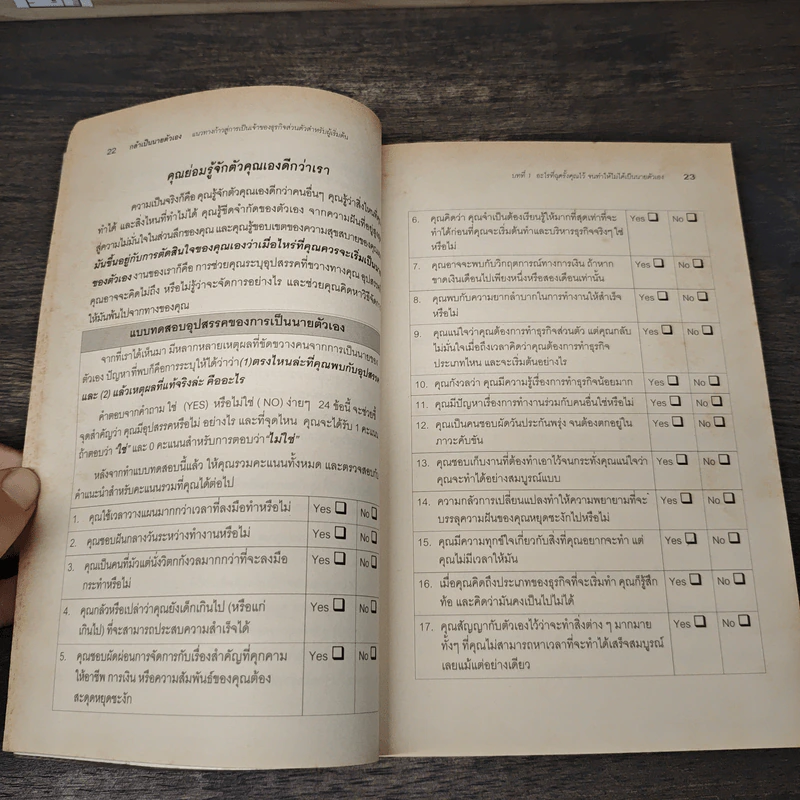 22 กล้าเป็นนายตัวเอง แนวทางก้าวสู่การเป็นเจ้าของธุรกิจส่วนตัวสำหรับผู้เริ่มต้น
คุณย่อมรู้จักตัวคุณเองดีกว่าเรา
ความเป็นจริงก็คือ คุณรู้จักตัวคุณเองดีกว่าคนอื่นๆ คุณรู้ว่าสิ่งไหนที่
ทำได้ และสิ่งไหนที่ทำไม่ได้ คุณรู้ขีดจำกัดของตัวเอง จากความฝันที่
สู่ความไม่มั่นใจในส่วนลึกของคุณ และคุณรู้ขอบเขตของความสุขสบายของ
มันขึ้นอยู่กับการตัดสินใจของคุณเองว่าเมื่อไหร่ที่คุณควรจะเริ่มเป็น
ของตัวเอง งานของเราก็คือ การช่วยคุณระบุอุปสรรคที่ขวางทางคุณ
คุณอาจจะคิดไม่ถึง หรือไม่รู้ว่าจะจัดการอย่างไร และช่วยคุณคิดหาวิธี
ให้มันพ้นไปจากทางของคุณ
แบบทดสอบอุปสรรคของการเป็นนายตัวเอง
จากที่เราได้เห็นมา มีหลากหลายเหตุผลที่ขัดขวางคนจากการเป็นนายของ
ตัวเอง ปัญหาที่พบก็คือการระบุให้ได้ว่าว่า (1) ตรงไหนล่ะที่คุณพบกับอุปสรรค
และ (2) แล้วเหตุผลที่แท้จริงล่ะ คืออะไร
คำตอบจากคำถาม ใช่ (YES) หรือไม่ใช่ ( NO) ง่ายๆ 24 ข้อนี้ จะช่วยชี้
จุดสำคัญว่า คุณมีอุปสรรคหรือไม่ อย่างไร และที่จุดไหน คุณจะได้รับ 1 คะแนน
ถ้าตอบว่า "ใช่" และ 0 คะแนนสำหรับการตอบว่า "ไม่ใช่"
หลังจากทำแบบทดสอบนี้แล้ว ให้คุณรวมคะแนนทั้งหมด และตรวจสอบกับ
คำแนะนำสำหรับคะแนนรวมที่คุณได้ต่อไป
1. คุณใช้เวลาวางแผนมากกว่าเวลาที่ลงมือทำหรือไม่ Yes ❑ No ❑
2. คุณชอบฝันกลางวันระหว่างทำงานหรือไม่ Yes ❑ No ❑
3. คุณเป็นคนที่มัวแต่นั่งวิตกกังวลมากกว่าที่จะลงมือ Yes ❑ No ❑
กระทำหรือไม่
4. คุณกลัวหรือเปล่าว่าคุณยังเด็กเกินไป (หรือแก่ Yes ❑ No ❑
เกินไป) ที่จะสามารถประสบความสำเร็จได้
5. คุณชอบผัดผ่อนการจัดการกับเรื่องสำคัญที่คุกคาม Yes ❑ No ❑
ให้อาชีพ การเงิน หรือความสัมพันธ์ของคุณต้อง
สะดุดหยุดชะงัก
บทที่ 1 อะไรที่ฉุดรั้งคุณไว้ จนทำให้ไม่ได้เป็นนายตัวเอง 23
6. คุณคิดว่า คุณจำเป็นต้องเรียนรู้ให้มากที่สุดเท่าที่จะ Yes ❑ No ❑
ทำได้ก่อนที่คุณจะเริ่มต้นทำและบริหารธุรกิจจริงๆ ใช่
หรือไม่
7. คุณอาจจะพบกับวิกฤตการณ์ทางการเงิน ถ้าหาก Yes ❑ No ❑
ขาดเงินเดือนไปเพียงหนึ่งหรือสองเดือนเท่านั้น
8. คุณพบกับความยากลำบากในการทำงานให้สำเร็จ Yes ❑ No ❑
หรือไม่
9. คุณแน่ใจว่าคุณต้องการทำธุรกิจส่วนตัว แต่คุณกลับ Yes ❑ No ❑
ไม่มั่นใจเมื่อถึงเวลาคิดว่าคุณต้องการทำธุรกิจ
ประเภทไหน และจะเริ่มต้นอย่างไร
10. คุณกังวลว่า คุณมีความรู้เรื่องการทำธุรกิจน้อยมาก Yes ❑ No ❑
11. คุณมีปัญหาเรื่องการทำงานร่วมกับคนอื่นใช่หรือไม่ Yes ❑ No ❑
12. คุณเป็นคนชอบผัดวันประกันพรุ่ง จนต้องตกอยู่ใน Yes ❑ No ❑
ภาวะคับขัน
13. คุณชอบเก็บงานที่ต้องทำเอาไว้จนกระทั่งคุณแน่ใจว่า Yes ❑ No ❑
คุณจะทำได้อย่างสมบูรณ์แบบ
14. ความกลัวการเปลี่ยนแปลงทำให้ความพยายามที่จะ Yes ❑ No ❑
บรรลุความฝันของคุณหยุดชะงักไปหรือไม่
15. คุณมีความทุกข์ใจเกี่ยวกับสิ่งที่คุณอยากจะทำ แต่ Yes ❑ No ❑
คุณไม่มีเวลาให้มัน
16. เมื่อคุณคิดถึงประเภทของธุรกิจที่จะเริ่มทำ คุณก็รู้สึก Yes ❑ No ❑
ท้อ และคิดว่ามันคงเป็นไปไม่ได้
17. คุณสัญญากับตัวเองไว้ว่าจะทำสิ่งต่าง ๆ มากมาย Yes ❑ No ❑
ทั้งๆ ที่คุณไม่สามารถหาเวลาที่จะทำได้เสร็จสมบูรณ์
เลยแม้แต่อย่างเดียว